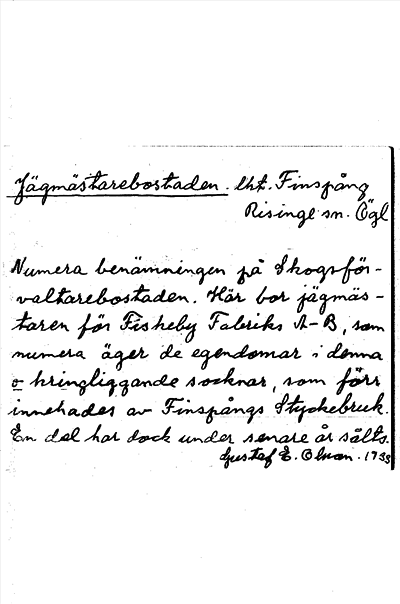 Jägmästarebostaden. lht. Finspång
Risinge sn. Ögl
Numera benämningen på Skogsför-
valtarebostaden. Här bor jägmäs-
taren för Fiskeby Fabriks A-B, som
numera äger de egendomar i denna
o kringliggande socknar, som förr
innehades av Finspångs Styckebruk.
En del har dock under senare år sålts.
Gustaf E. Olson.